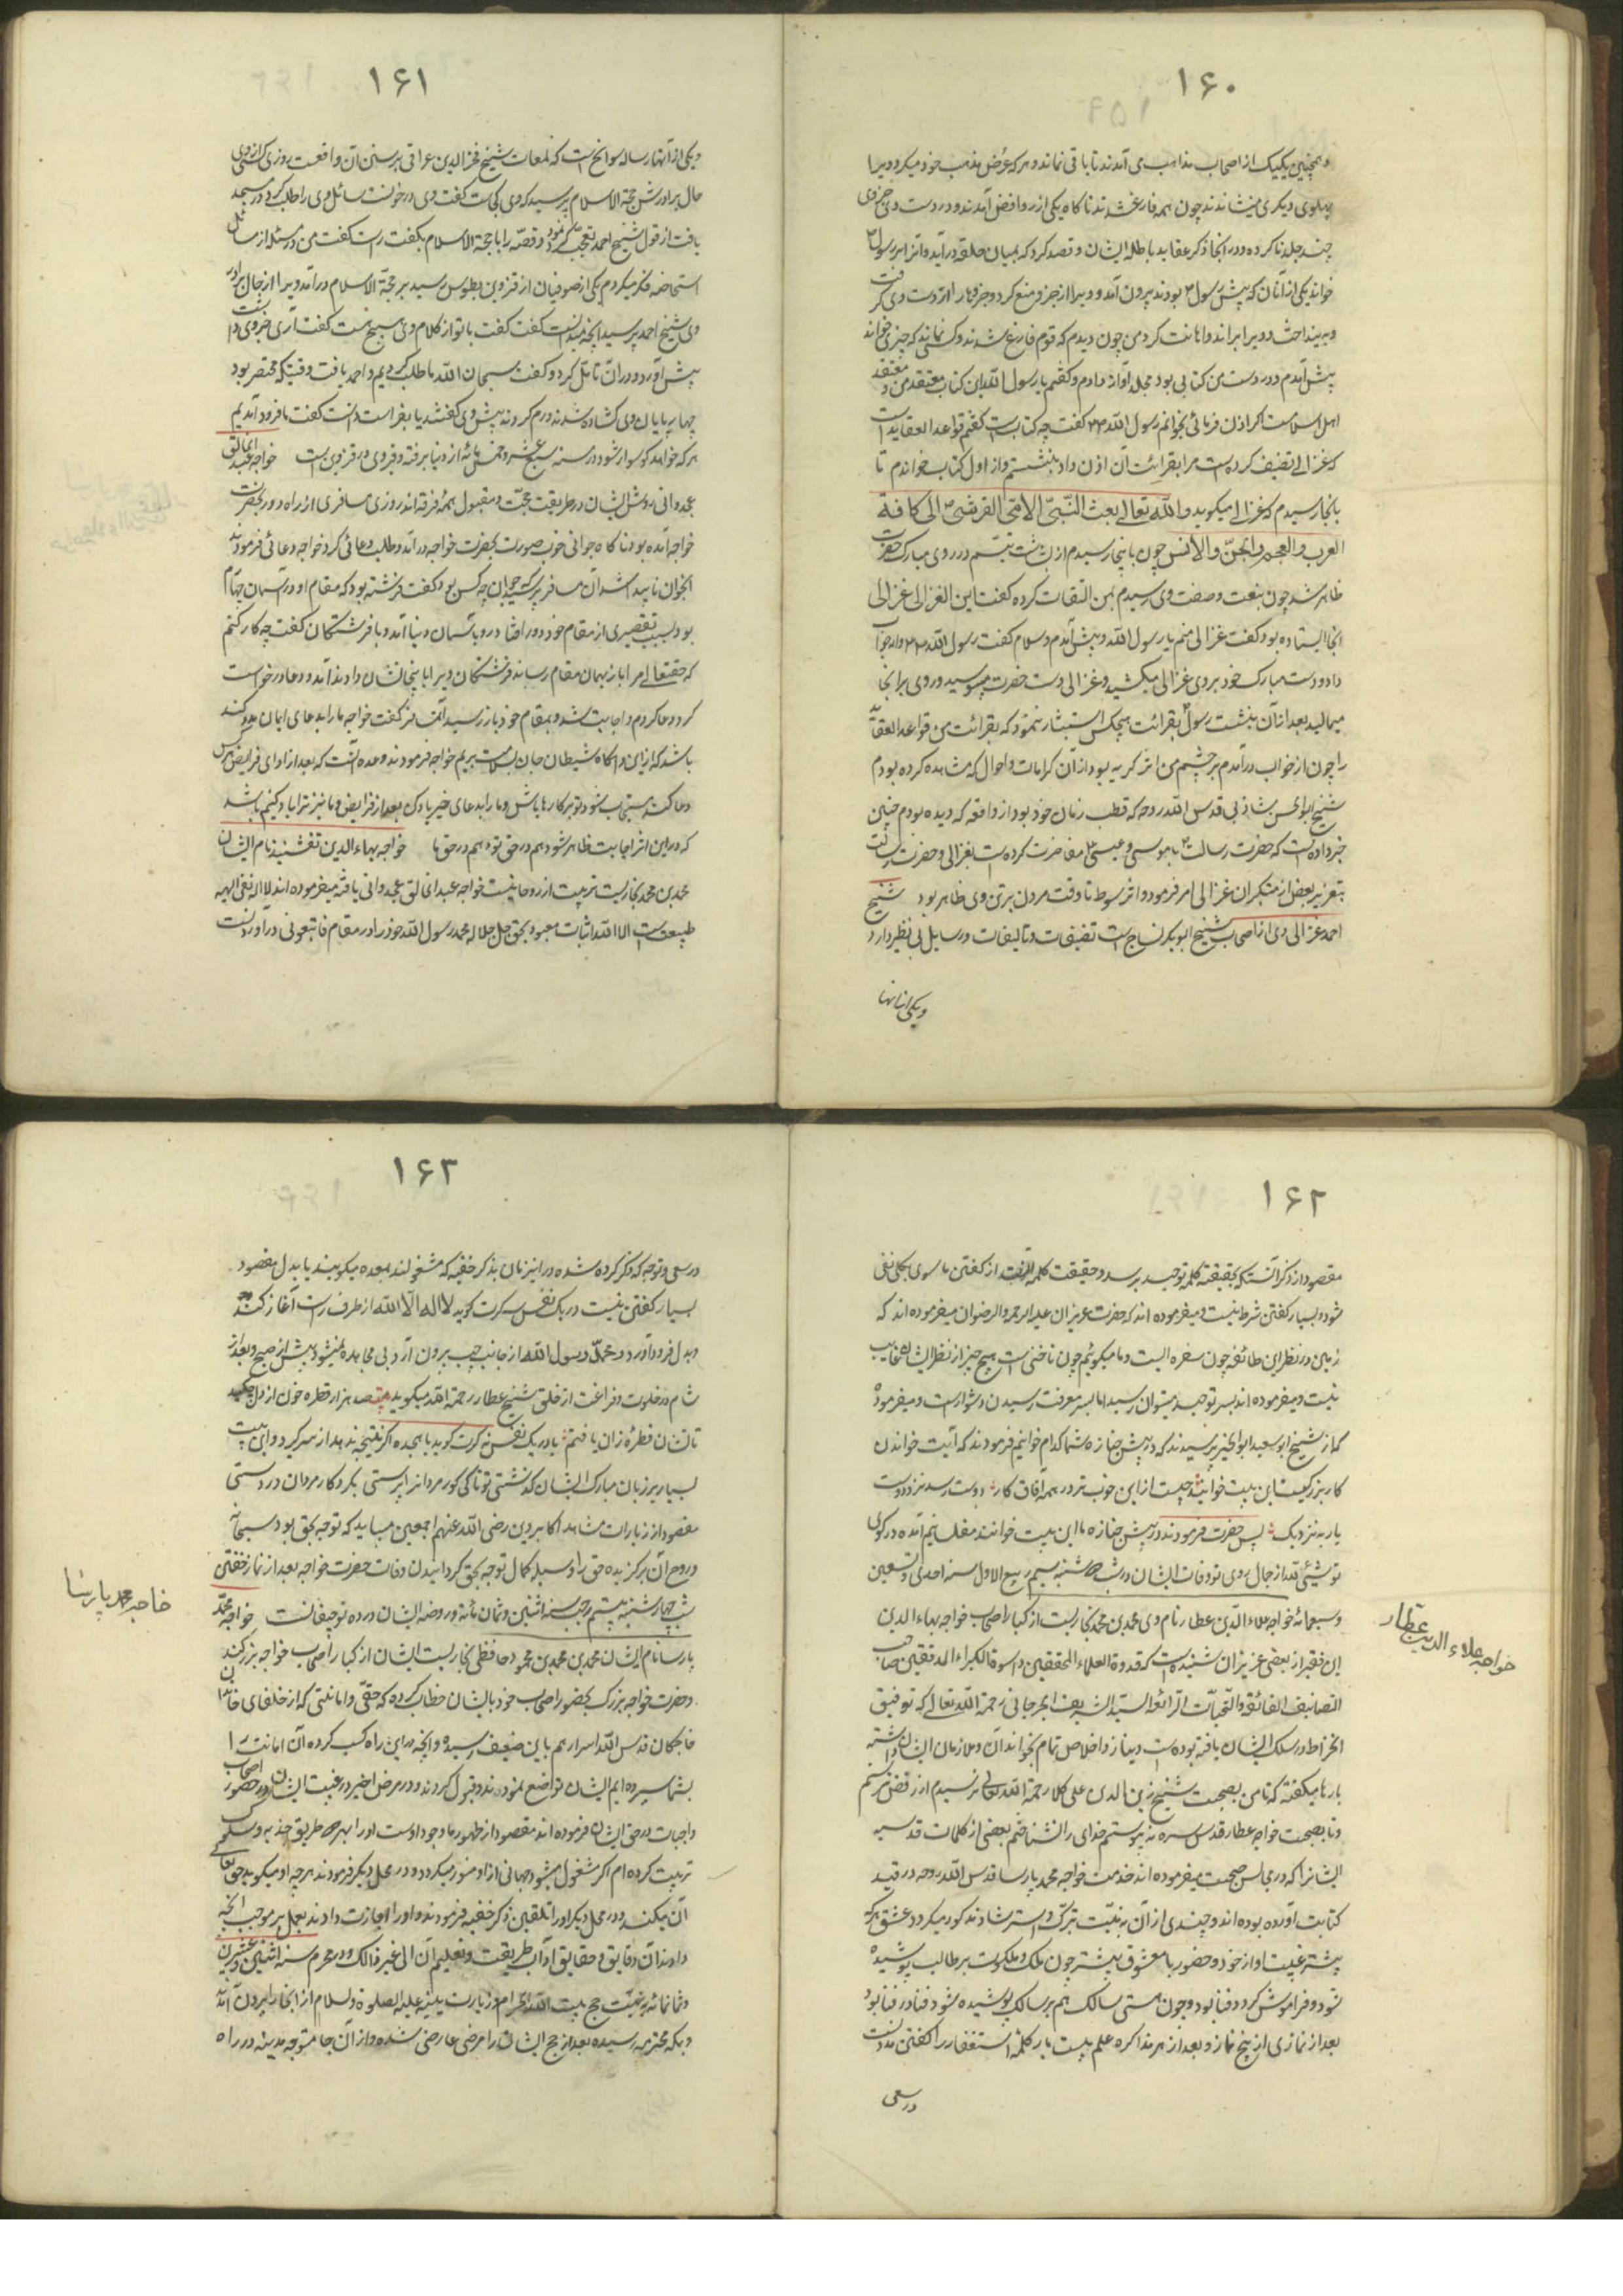 ۱۶۰
و همچنین یکیک از اصحاب مذاهب می آمدند تا باقی نماند و هر که عرض مذهب خود میکرد ویرا
پهلوی دیگری مینشاندند چون همه فارغ شدند ناکاه یکی از روافض آمد و در دست وی جزوی
چند جلد ناکرده و در انجا ذکر عقاید باطله ایشان و قصد کرد که بمیان حلقه درآید و آنرا بر رسول
خواند یکی از آنان که پیش رسول بودند بیرون آمد و ویرا از جز و منع کرد و جزوها را از دست وی گرفت
و بینداخت و ویرا براند و اهانت کرد من چون دیدم که قوم فارغ شدند و کسی نماند که چیزی خواند
پیش آمدم و در دست من کتابی بود مجلد آواز دادم و گفتم یا رسول الله این کتاب معتقد من و معتقد
اهل اسلامست اگر اذن فرمائی بخوانم رسول الله گفت چه کتاب است گفتم قواعد العقاید است
که غزالی تصنیف کرده است مرا بقرائت آن اذن داد بنشستم و از اول کتاب خواندم تا
بانجا رسیدم که غزالی میگوید والله تعالی بعث النبی الامی القرشی الی کافة
العرب والعجم والجن والانس چون باینجا رسیدم اثر بشاشت و تبسم در روی مبارک حضرت
ظاهر شد چون بنعت و صفت وی رسیدم بمن التفات کرده گفت این الغزالی غزالی
انجا ایستاده بود گفت غزالی منم یا رسول الله و پیش آمدم و سلام گفت رسول الله جواب
داد و دست مبارک خود بروی غزالی میکشید و غزالی دست حضرت میبوسید و روی بر انجا
میمالید بعد از آن بنشست رسول بقرائت هیچکس استبشار ننمود که بقرائت من قواعد العقاید
را چون از خواب درآمدم بر چشم من اثر کریه بود از آن کرامات و احوال که مشاهده کرده بودم
شیخ ابوالحسن شاذلی قدس الله روحه که قطب زمان خود بود از واقعه که دیده بودم چنین
خبر داده است که حضرت رسالت با موسی و عیسی مفاخرت کرده است بغزالی و حضرت رسالت
بتعزیر بعض از منکران غزالی امر فرمود و اثر سوط تا وقت مردن بر تن وی ظاهر بود شیخ
احمد غزالی وی از اصحاب شیخ ابوبکر نساج است تصنیفات و تالیفات و رسایل بی نظیر دارد
ویکی از آنها
۱۶۱
ویکی از آنها رساله سوانح است که لمعات شیخ فخرالدین عراقی بر سنن آن واقعست روزی کسی از وی
حال برادرش حجة الاسلام پرسید که وی کجاست گفت وی در خونست سائل وی را طلب کرد در مسجد
یافت از قول شیخ احمد تعجب نمود و قصه را با حجة الاسلام بگفت گفت راست گفت من در مسئله از مسائل
استحاضه فکر میکردم یکی از صوفیان از قزوین بطوس رسید بر حجة الاسلام درآمد ویرا از حال برادر
وی شیخ احمد پرسید آنچه میدانست گفت گفت با تو از کلام وی هیچ هست گفت آری جزوی داشت
پیش آورد و در آن تامل کرد و گفت سبحان الله ما طلب کردیم و احمد یافت وقتیکه محتضر بود
چهارپایان وی کشاده شدند و رم کردند پیش وی گفتند یا بفراست دانست گفت ما فرود آمدیم
هر که خواهد کو سوار شو در سنه سبع عشر و خمس مائه از دنیا برفته و قبر وی در قزوین است خواجه عبدالخالق
غجدوانی روش ایشان در طریقت حجت و مقبول همهٔ فرقه اند روزی مسافری از راه دور بحضرت
خواجه آمده بود ناکاه جوانی خوب صورت بحضرت خواجه درآمد و طلب دعائی کرد خواجه دعائی فرمود
آنجوان ناپیدا شد آن مسافر پرسید که جوان چه کس بود گفت فرشته بود که مقام او در آسمان چهارم
بود و بسبب تقصیری از مقام خود دور افتاد و باسمان دنیا آمد و با فرشتگان گفت چه کار کنم
که حقتعالی مرا باز بهمان مقام رساند فرشتگان ویرا باینجا نشان دادند آمد و دعا درخواست
کرد دعا کردم و اجابت شد و بمقام خود باز رسید آن مسافر گفت خواجه ما را بدعای ایمان مدد کنید
باشد که از این دامگاه شیطان جان بسلامت بریم خواجه فرمودند وعده آنست که بعد از ادای فرایض هر کس
دعا کند مستجاب شود تو بر کار باش و ما را بدعای خیر یاد کن بعد از فرایض و ما نیز ترا یاد کنیم باشد
که در این اثر اجابت ظاهر شود هم در حق تو و هم در حق ما خواجه بهاء الدین نقشبند نام ایشان
محمد بن محمد بخاریست تربیت از روحانیت خواجه عبدالخالق غجدوانی یافته میفرموده اند لا اله نفی الهه
طبیعت است الا الله اثبات معبود بحق جل جلاله محمد رسول الله خود را در مقام فاتبعونی درآوردنست
۱۶۲
مقصود از ذکر آنستکه بحقیقت کلمه توحید برسد و حقیقت کلمه آنست از گفتن ما سوی بکلی نفی
شود و بسیار گفتن شرط نیست و میفرموده اند که حضرت عزیزان علیه الرحمه والرضوان میفرموده اند که
زمین در نظر این طائفه چون سفره ایست و ما میگوئیم چون ناخنی است هیچ چیز از نظر ایشان غایب
نیست و میفرموده اند بسر توحید میتوان رسید اما بسر معرفت رسیدن دشوار است و میفرمودند
که از شیخ ابوسعید ابوالخیر پرسیدند که در پیش جنازه شما کدام خوانیم فرمودند که آیت خواندن
کار بزرگیست این بیت خوانید چیست از این خوب تر در همه آفاق کار دوست رسد نزد دوست
یار به نزدیک یار پس حضرت فرمودند در پیش جنازه ما این بیت خوانند مفلسانیم آمده در کوی
تو شیئی لله از جمال روی تو وفات ایشان در شب دوشنبه سیم ربیع الاول سنه احدی و تسعین
و سبعمائه خواجه علاء الدین عطار نام وی محمد بن محمد بخاریست از کبار اصحاب خواجه بهاء الدین
این فقیر از بعضی عزیزان شنیده است که قدوة العلماء المحققین و اسوة الکبراء المدققین صاحب
التصانیف الفائقه والتحقیقات الرائقه السید الشریف الجرجانی رحمة الله تعالی که توفیق
انخراط در سلک ایشان یافته بوده است و نیاز و اخلاص تمام بخواندان و ملازمان ایشان داشته
بارها میگفته که تا من بصحبت شیخ زین الدین علی کلا رحمة الله تعالی نرسیدم از رفض نرستم
و تا بصحبت خواجه عطار قدس سره نپیوستم خدای را نشناختم بعضی از کلمات قدسیه
ایشانرا که در مجالس صحبت میفرموده اند خدمت خواجه محمد پارسا قدس الله روحه در قید
کتابت آورده بوده اند و چندی از آن به نیت تبرک و استرشاد مذکور میکردد عشق هر که
پیشتر غیبت او از خود و حضور با معشوق بیشتر چون ملک و ملکوت بر طالب پوشیده
شود و فراموش کردد فنا بود و چون هستی سالک هم بر سالک پوشیده شود فنا در فنا بود
بعد از نمازی از پنج نماز و بعد از هر مذاکره علم بیست بار کلمهٔ استغفار را گفتن مددست
در سعی
خواجه علاء الدین عطار
۱۶۳
در سعی و توجه که ذکر کرده شده در اینزمان بذکر خفیه که مشغولند بمعده میکویند یا بدل مقصود
بسیار گفتن نیست در یک نفس سه کرت کوید لا اله الا الله از طرف راست آغاز کند
و بدل فرود آورد و محمد رسول الله از جانب چپ بیرون آرد بی مجاهده نمیشود پیش از صبح و بعد از
شام در خلوت و فراغت از خلق شیخ عطار رحمة الله میکوید صد هزار قطره خون از دل چکید
تا نشان قطرهٔ زان یافتم یا در یک نفس نه کرت کوید یا هجده اگر نتیجه ندهد از سر گیرد و این بیت
بسیار بر زبان مبارک ایشان گذشتی تو تا کی کور مردانرا پرستی بکرد کار مردان کرد رستی
مقصود از زیارات مشاهد اکابر دین رضی الله عنهم اجمعین میباید که توجه بحق بود سبحانه
و روح آن برگزیده حق را وسیله کمال توجه بحق کردانیدن وفات حضرت خواجه بعد از نماز خفتن
شب چهارشنبه بیستم رجب سنه اثنین و ثمان مائه و روضه ایشان در ده نو چغانیانست خواجه محمد
پارسا نام ایشان محمد بن محمد بن محمود حافظی بخاریست ایشان از کبار اصحاب خواجه بزرگند
و حضرت خواجه بزرگ بحضور اصحاب خود بایشان خطاب کرده که حقی و امانتی که از خلفای خاندان
خاجکان قدس الله اسرارهم باین ضعیف رسیده و آنچه در این راه کسب کرده آن امانت را
بشما سپرده ایم ایشان تواضع نمودند و قبول کردند و در مرض اخیر در غیبت ایشان و در حضور اصحاب
و اجبات در حق ایشان فرموده اند مقصود از ظهور ما وجود اوست او را بهر دو طریق جذبه و سلوک
تربیت کرده ام اگر مشغول میشود جهانی از او منور میکردد و در محل دیگر فرمودند هر چه او میکوید حق تعالی
آن میکند و در محل دیگر او را تلقین ذکر خفیه فرمودند و او را اجازت دادند بعمل بر موجب آنچه
دانند آن دقایق و حقایق آداب طریقت و تعلیم آن الی غیر ذالک و در محرم سنه اثنین و عشرین
و ثمانمائه به نیت حج بیت الله الحرام و زیارت نبیه علیه الصلوة والسلام از بخارا بیرون آمدند
و بمکه محترمه رسیده بعد از حج ایشان را مرضی عارضی شده و از آن جا متوجه مدینه در راه
خاجه محمد پارسا